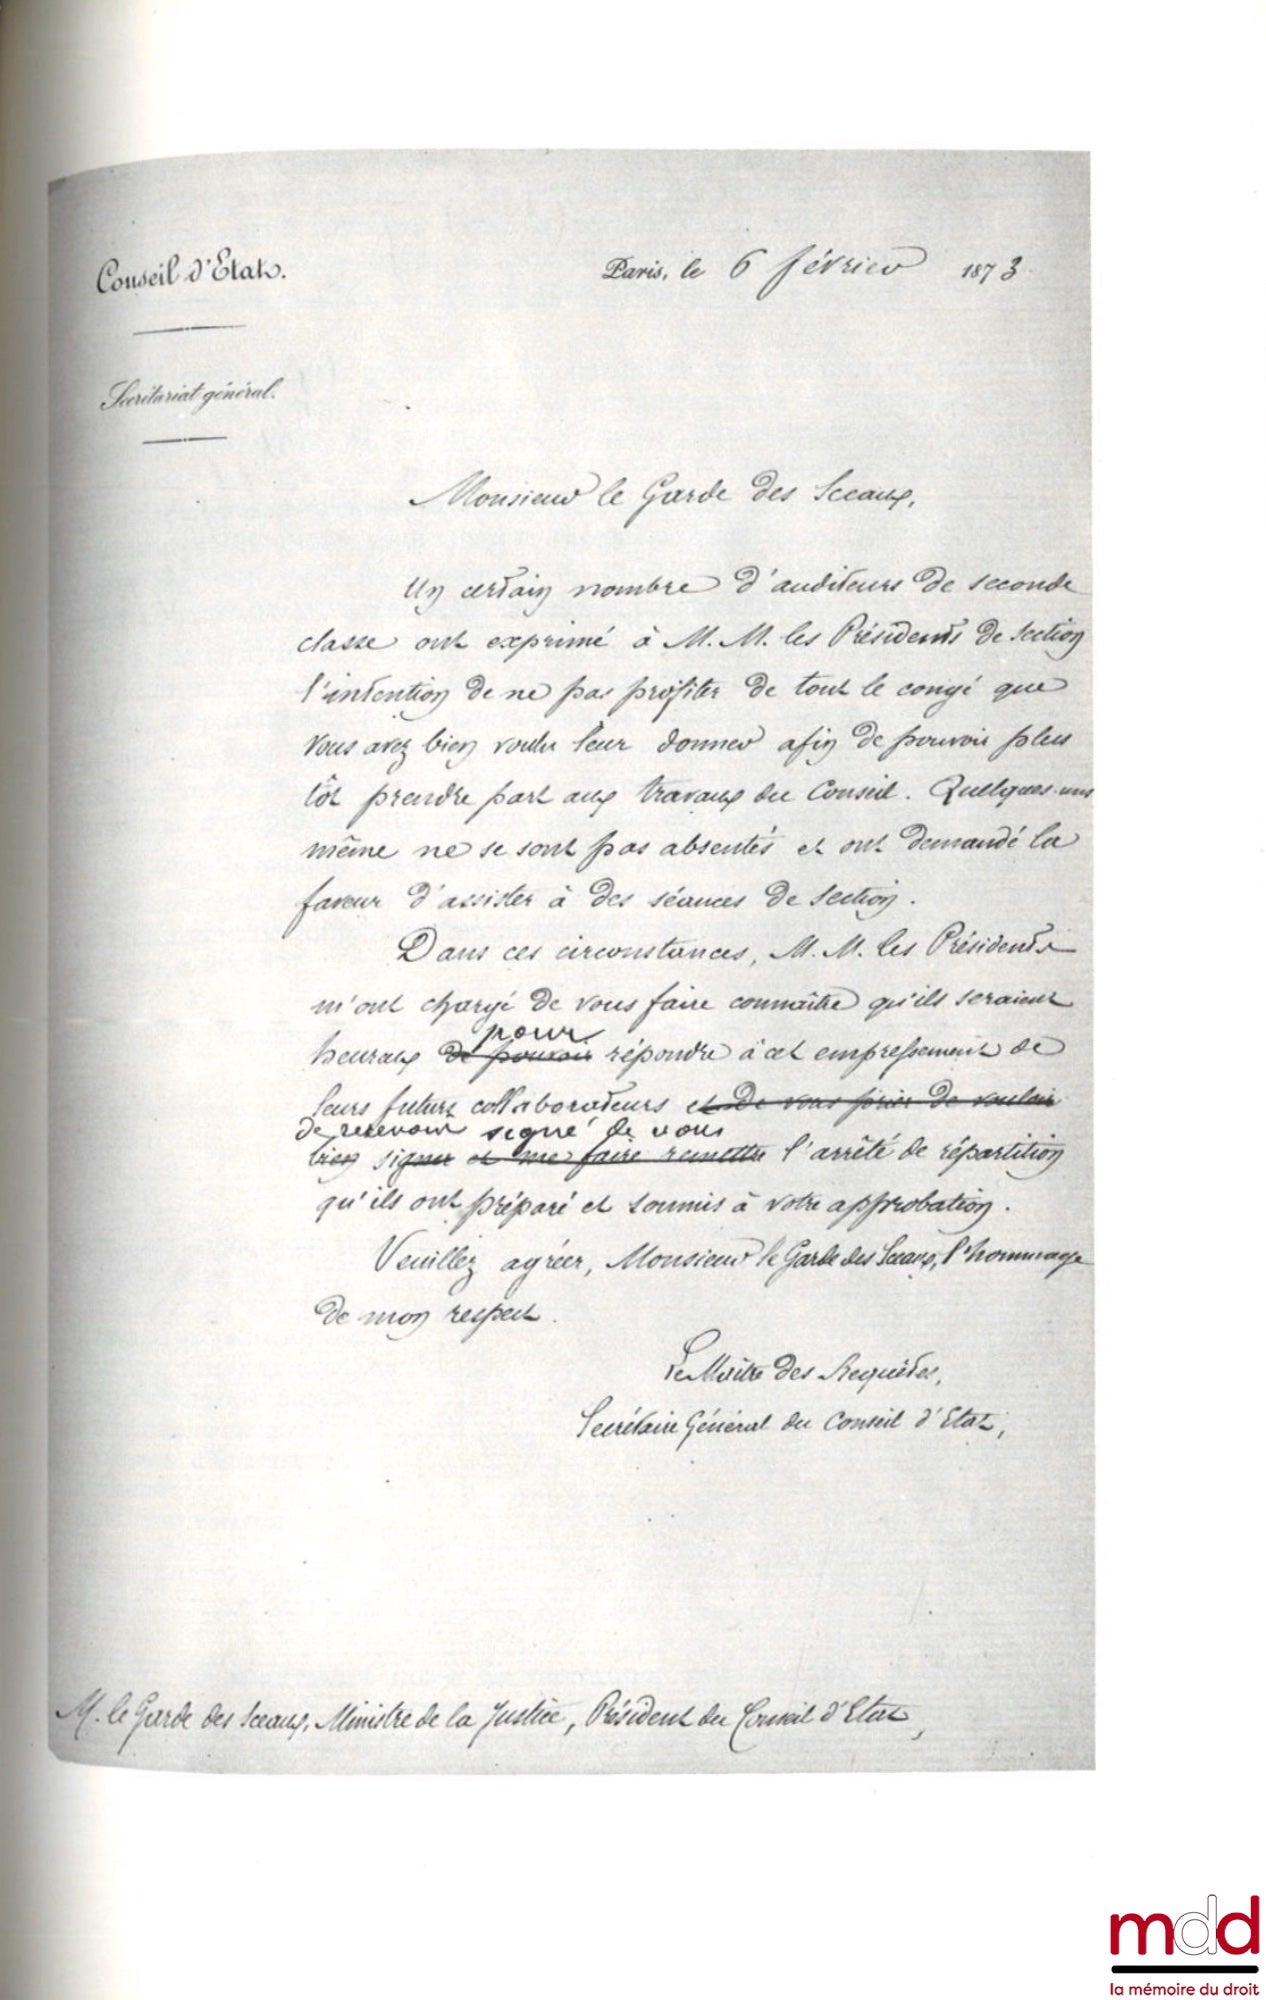 Conseil d'Etat.
Paris, le 6 février 1873
Secrétariat général.
Monsieur le Garde des Sceaux,
Un certain nombre d'auditeurs de seconde
classe ont exprimé à M. M. les Présidents de Section
l'intention de ne pas profiter de tout le congé que
vous avez bien voulu leur donner afin de pouvoir plus
tôt prendre part aux travaux du Conseil. Quelques-uns
même ne se sont pas absentés et ont demandé la
faveur d'assister à des séances de Section.
Dans ces circonstances, M. M. les Présidents
m'ont chargé de vous faire connaître qu'ils seraient
pour
heureux de pouvoir répondre à cet empressement de
leurs futurs collaborateurs et de vous prier de vouloir
de recevoir signé de vous
bien signer et me faire remettre l'arrêté de répartition
qu'ils ont préparé et soumis à votre approbation.
Veuillez agréer, Monsieur le Garde des Sceaux, l'hommage
de mon respect.
Le Maître des Requêtes,
Secrétaire Général du Conseil d'Etat,
M. le Garde des Sceaux, Ministre de la Justice, Président du Conseil d'Etat,
mdd
la mémoire du droit